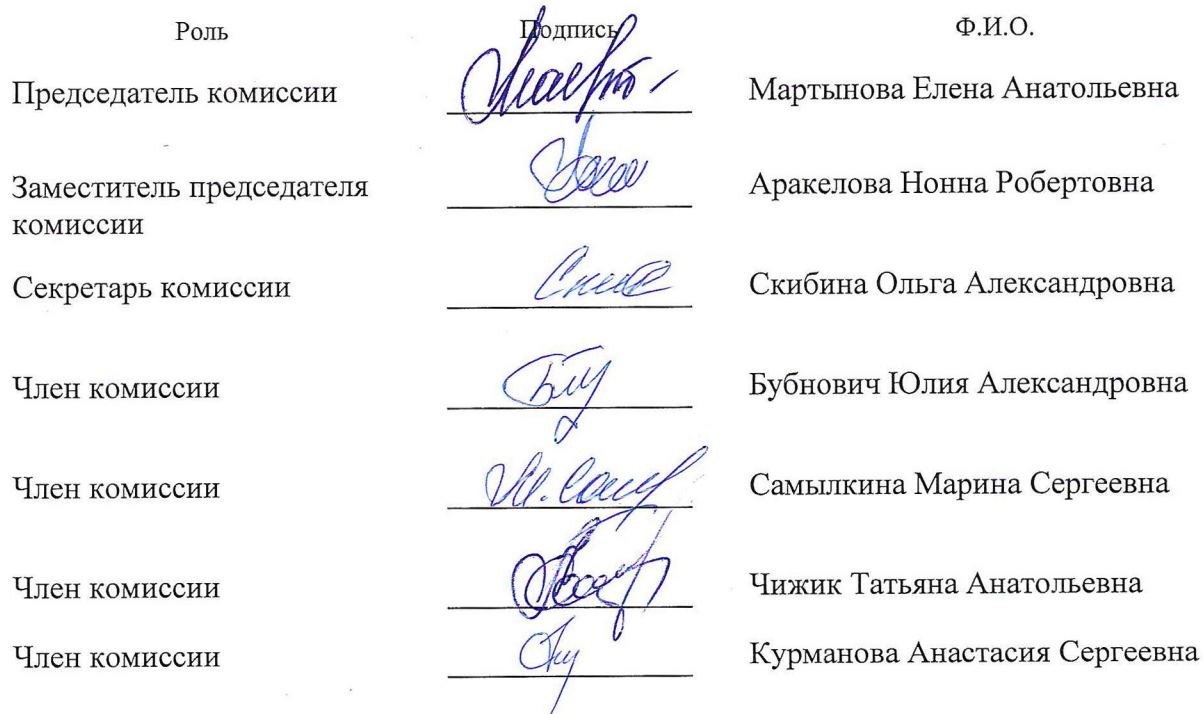 Роль Подпись Ф.И.О.
Председатель комиссии Мартынова Елена Анатольевна
Заместитель председателя Аракелова Нонна Робертовна
комиссии
Секретарь комиссии Скибина Ольга Александровна
Член комиссии Бубнович Юлия Александровна
Член комиссии Самылкина Марина Сергеевна
Член комиссии Чижик Татьяна Анатольевна
Член комиссии Курманова Анастасия Сергеевна